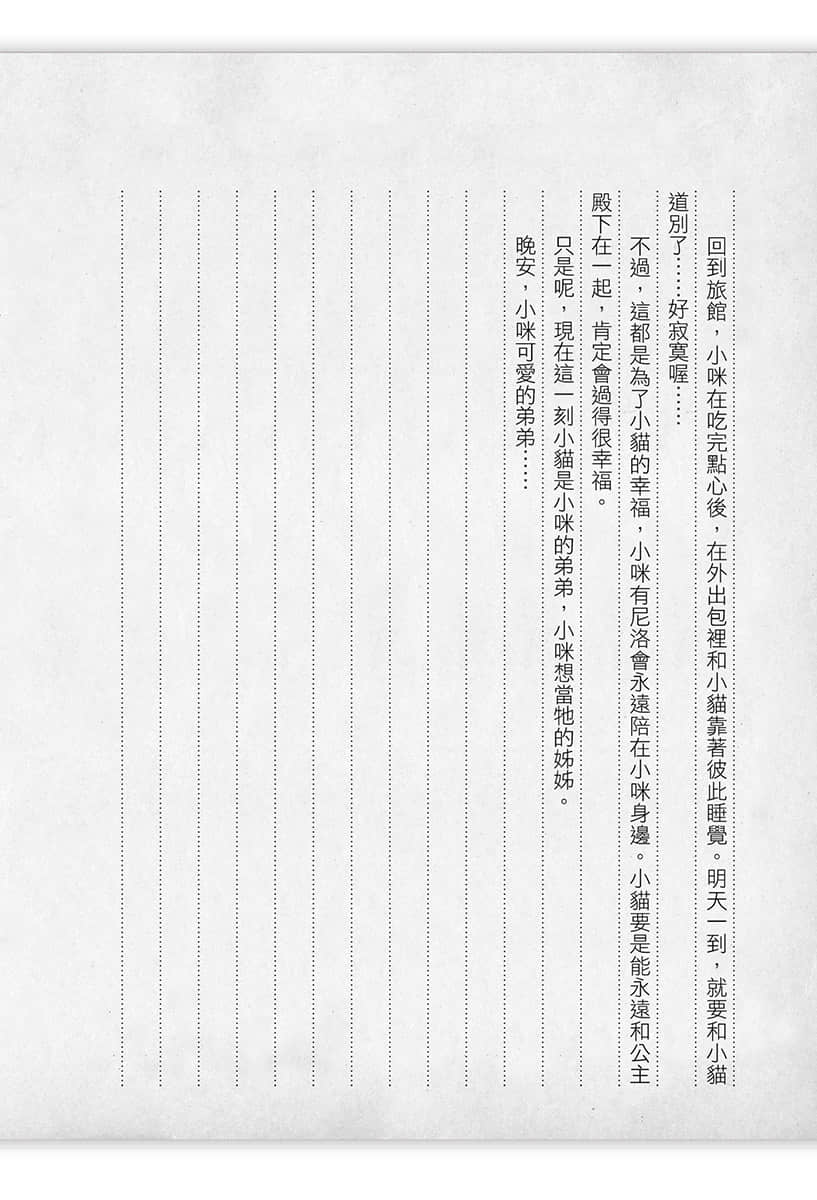 回到旅館，小咪在吃完點心後，在外出包裡和小貓靠著彼此睡覺。明天一到，就要和小貓
道別了……好寂寞喔……
不過，這都是為了小貓的幸福，小咪有尼洛會永遠陪在小咪身邊。小貓要是能永遠和公主
殿下在一起，肯定會過得很幸福。
只是呢，現在這一刻小貓是小咪的弟弟，小咪想當牠的姊姊。
晚安，小咪可愛的弟弟……